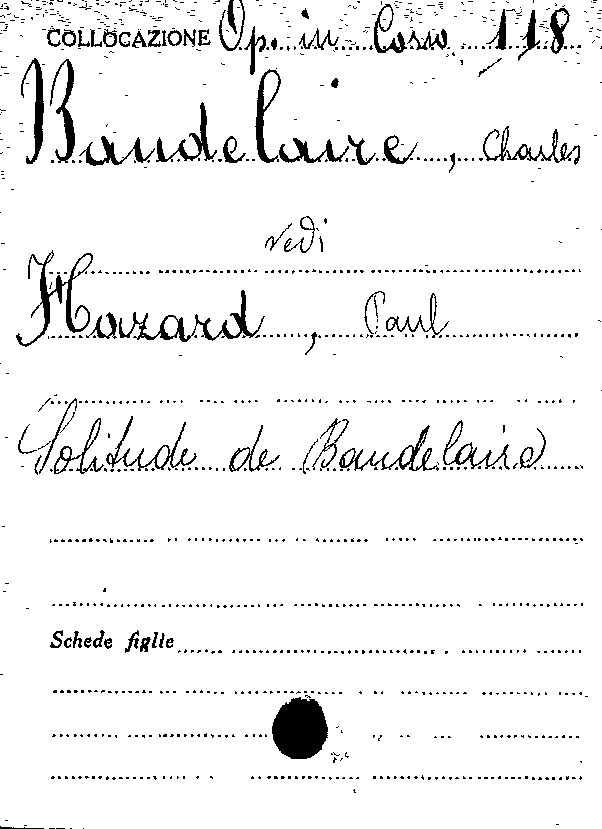 COLLOCAZIONE Op. in Corso 118
Baudelaire, Charles
vedi
Hazard, Paul
Solitude de Baudelaire
Schede figlie